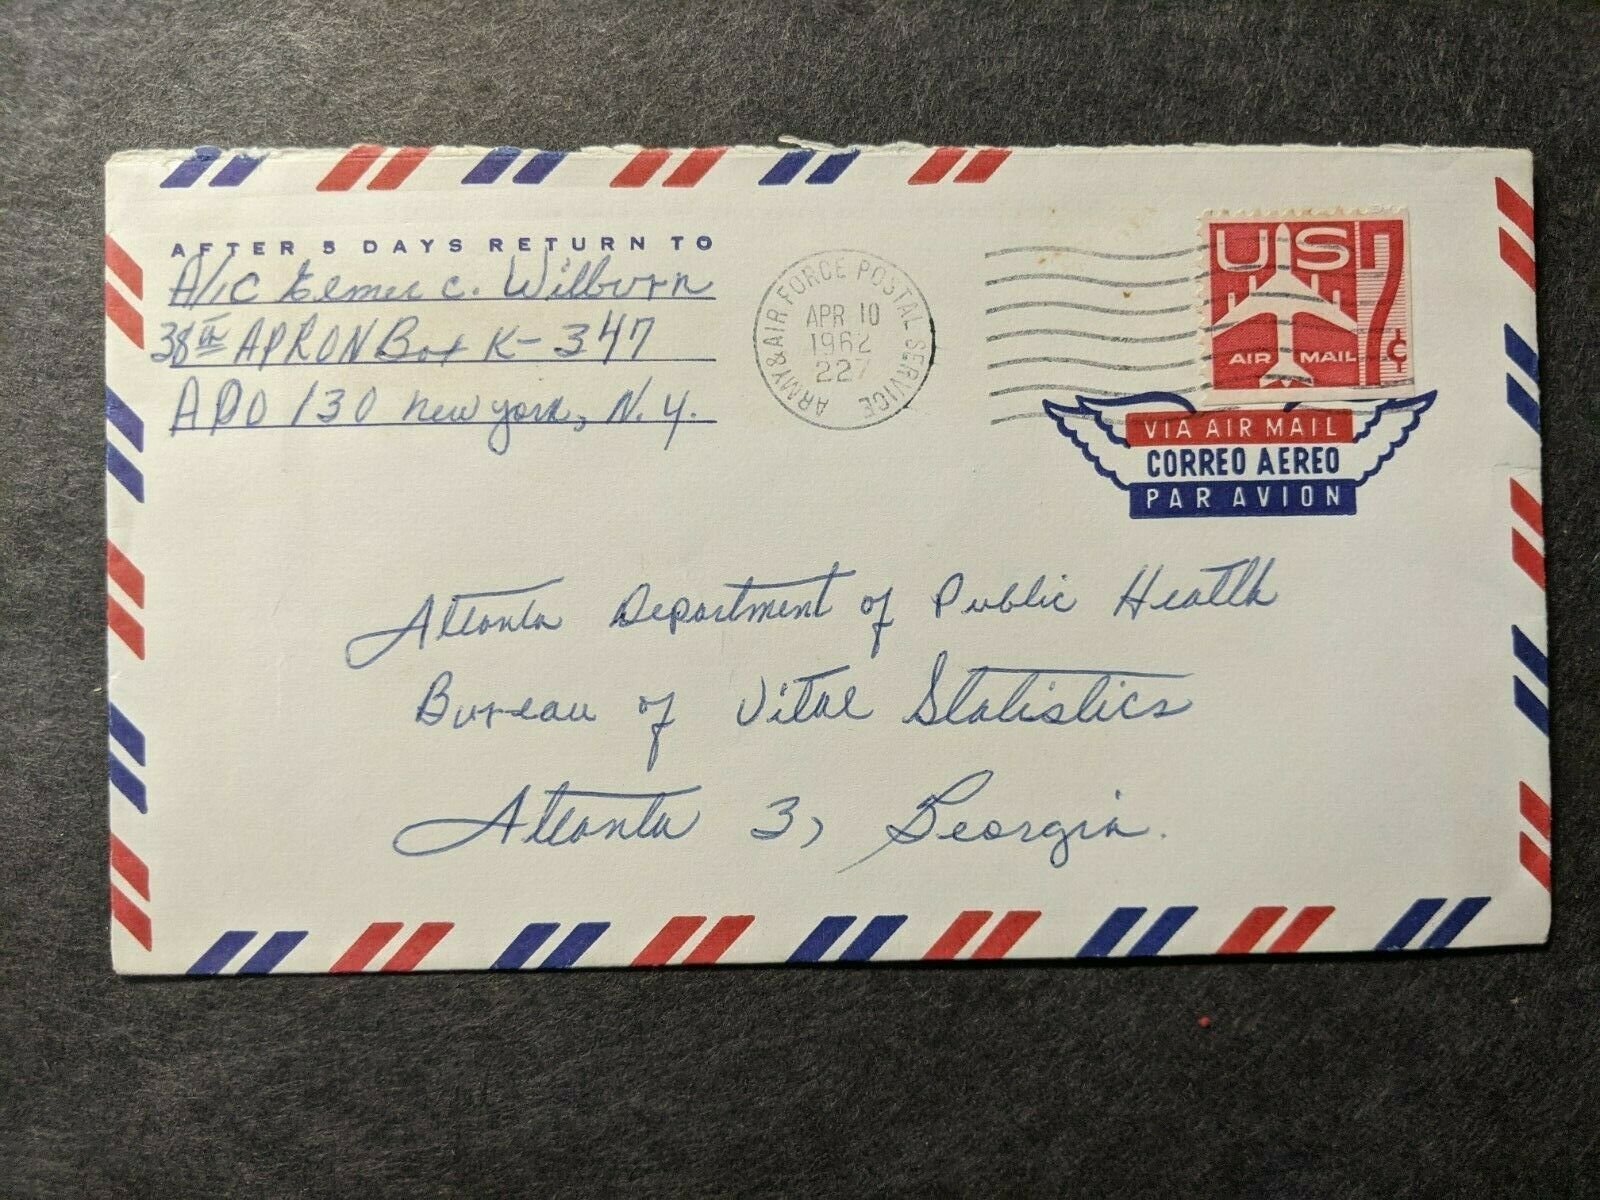 AFTER 5 DAYS RETURN TO
A/1C Elmer C. Wilburn
38th APRON Box K-347
APO 130 New York, N.Y.
ARMY & AIR FORCE POSTAL SERVICE
APR 10
1962
227
US 7¢
AIR MAIL
VIA AIR MAIL
CORREO AEREO
PAR AVION
Atlanta Department of Public Health
Bureau of Vital Statistics
Atlanta 3, Georgia.